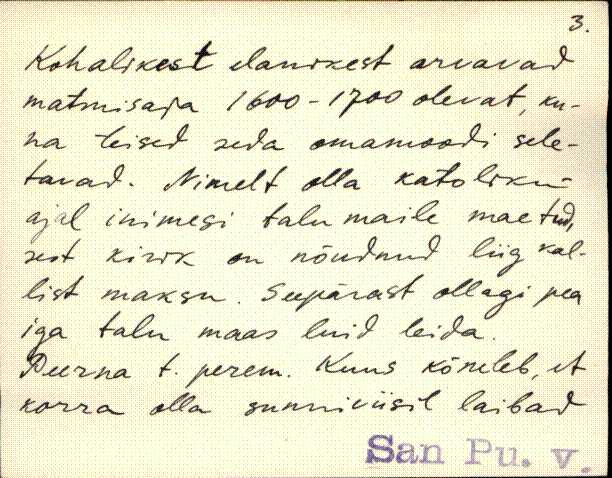 3.
Kohalikest elanikest arvavad
matmisaja 1600-1700 olevat, ku-
na teised seda omamoodi sele-
tavad. Nimelt olla katoliku
ajal inimesi talu maile maetud,
sest kirik on nõudnud liig kal-
list maksu. Seepärast ollagi pea
iga talu maas luid leida.
Peerna t. perem. Kuus kõneleb, et
korra olla sunniviisil laibad
San Pu. v.